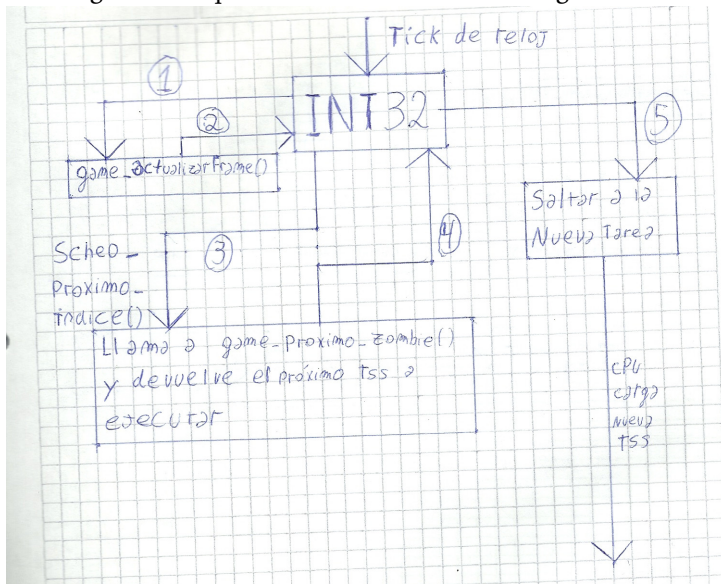 Tick de reloj
1
INT32
2
5
game_actualizarFrame()
Saltar a la
Nueva Tarea
Sched_
3
4
Proximo_
indice()
Llama a game_proximo_zombie()
y devuelve el próximo tss a
ejecutar
CPU
carga
nueva
TSS